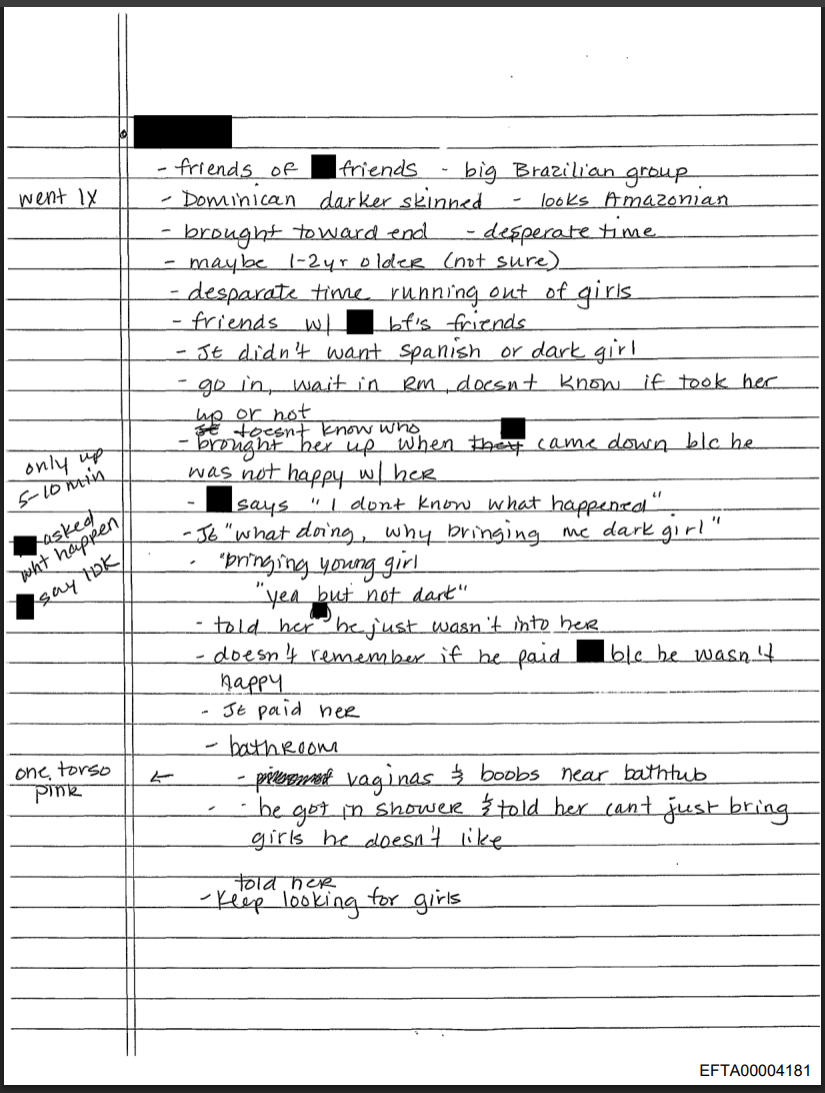 - friends of friends - big Brazilian group
went 1x
- Dominican darker skinned - looks Amazonian
- brought toward end - desperate time
- maybe 1-2yr older (not sure)
- desparate time running out of girls
- friends w/ bf's friends
- JE didn't want Spanish or dark girl
- go in, wait in RM, doesnt know if took her
up or not
doesnt know who
- brought her up when they came down b/c he
was not happy w/ her
only up
5-10 min
- says "I dont know what happened"
- JE "what doing, why bringing me dark girl"
asked
wht happen
say IDK
- "bringing young girl
"yea but not dark"
- told her he just wasn't into her
- doesn't remember if he paid b/c he wasn't
happy
- JE paid her
- bathroom
one torso
pink
← - vaginas & boobs near bathtub
- he got in shower & told her cant just bring
girls he doesn't like
told her
- Keep looking for girls
EFTA00004181